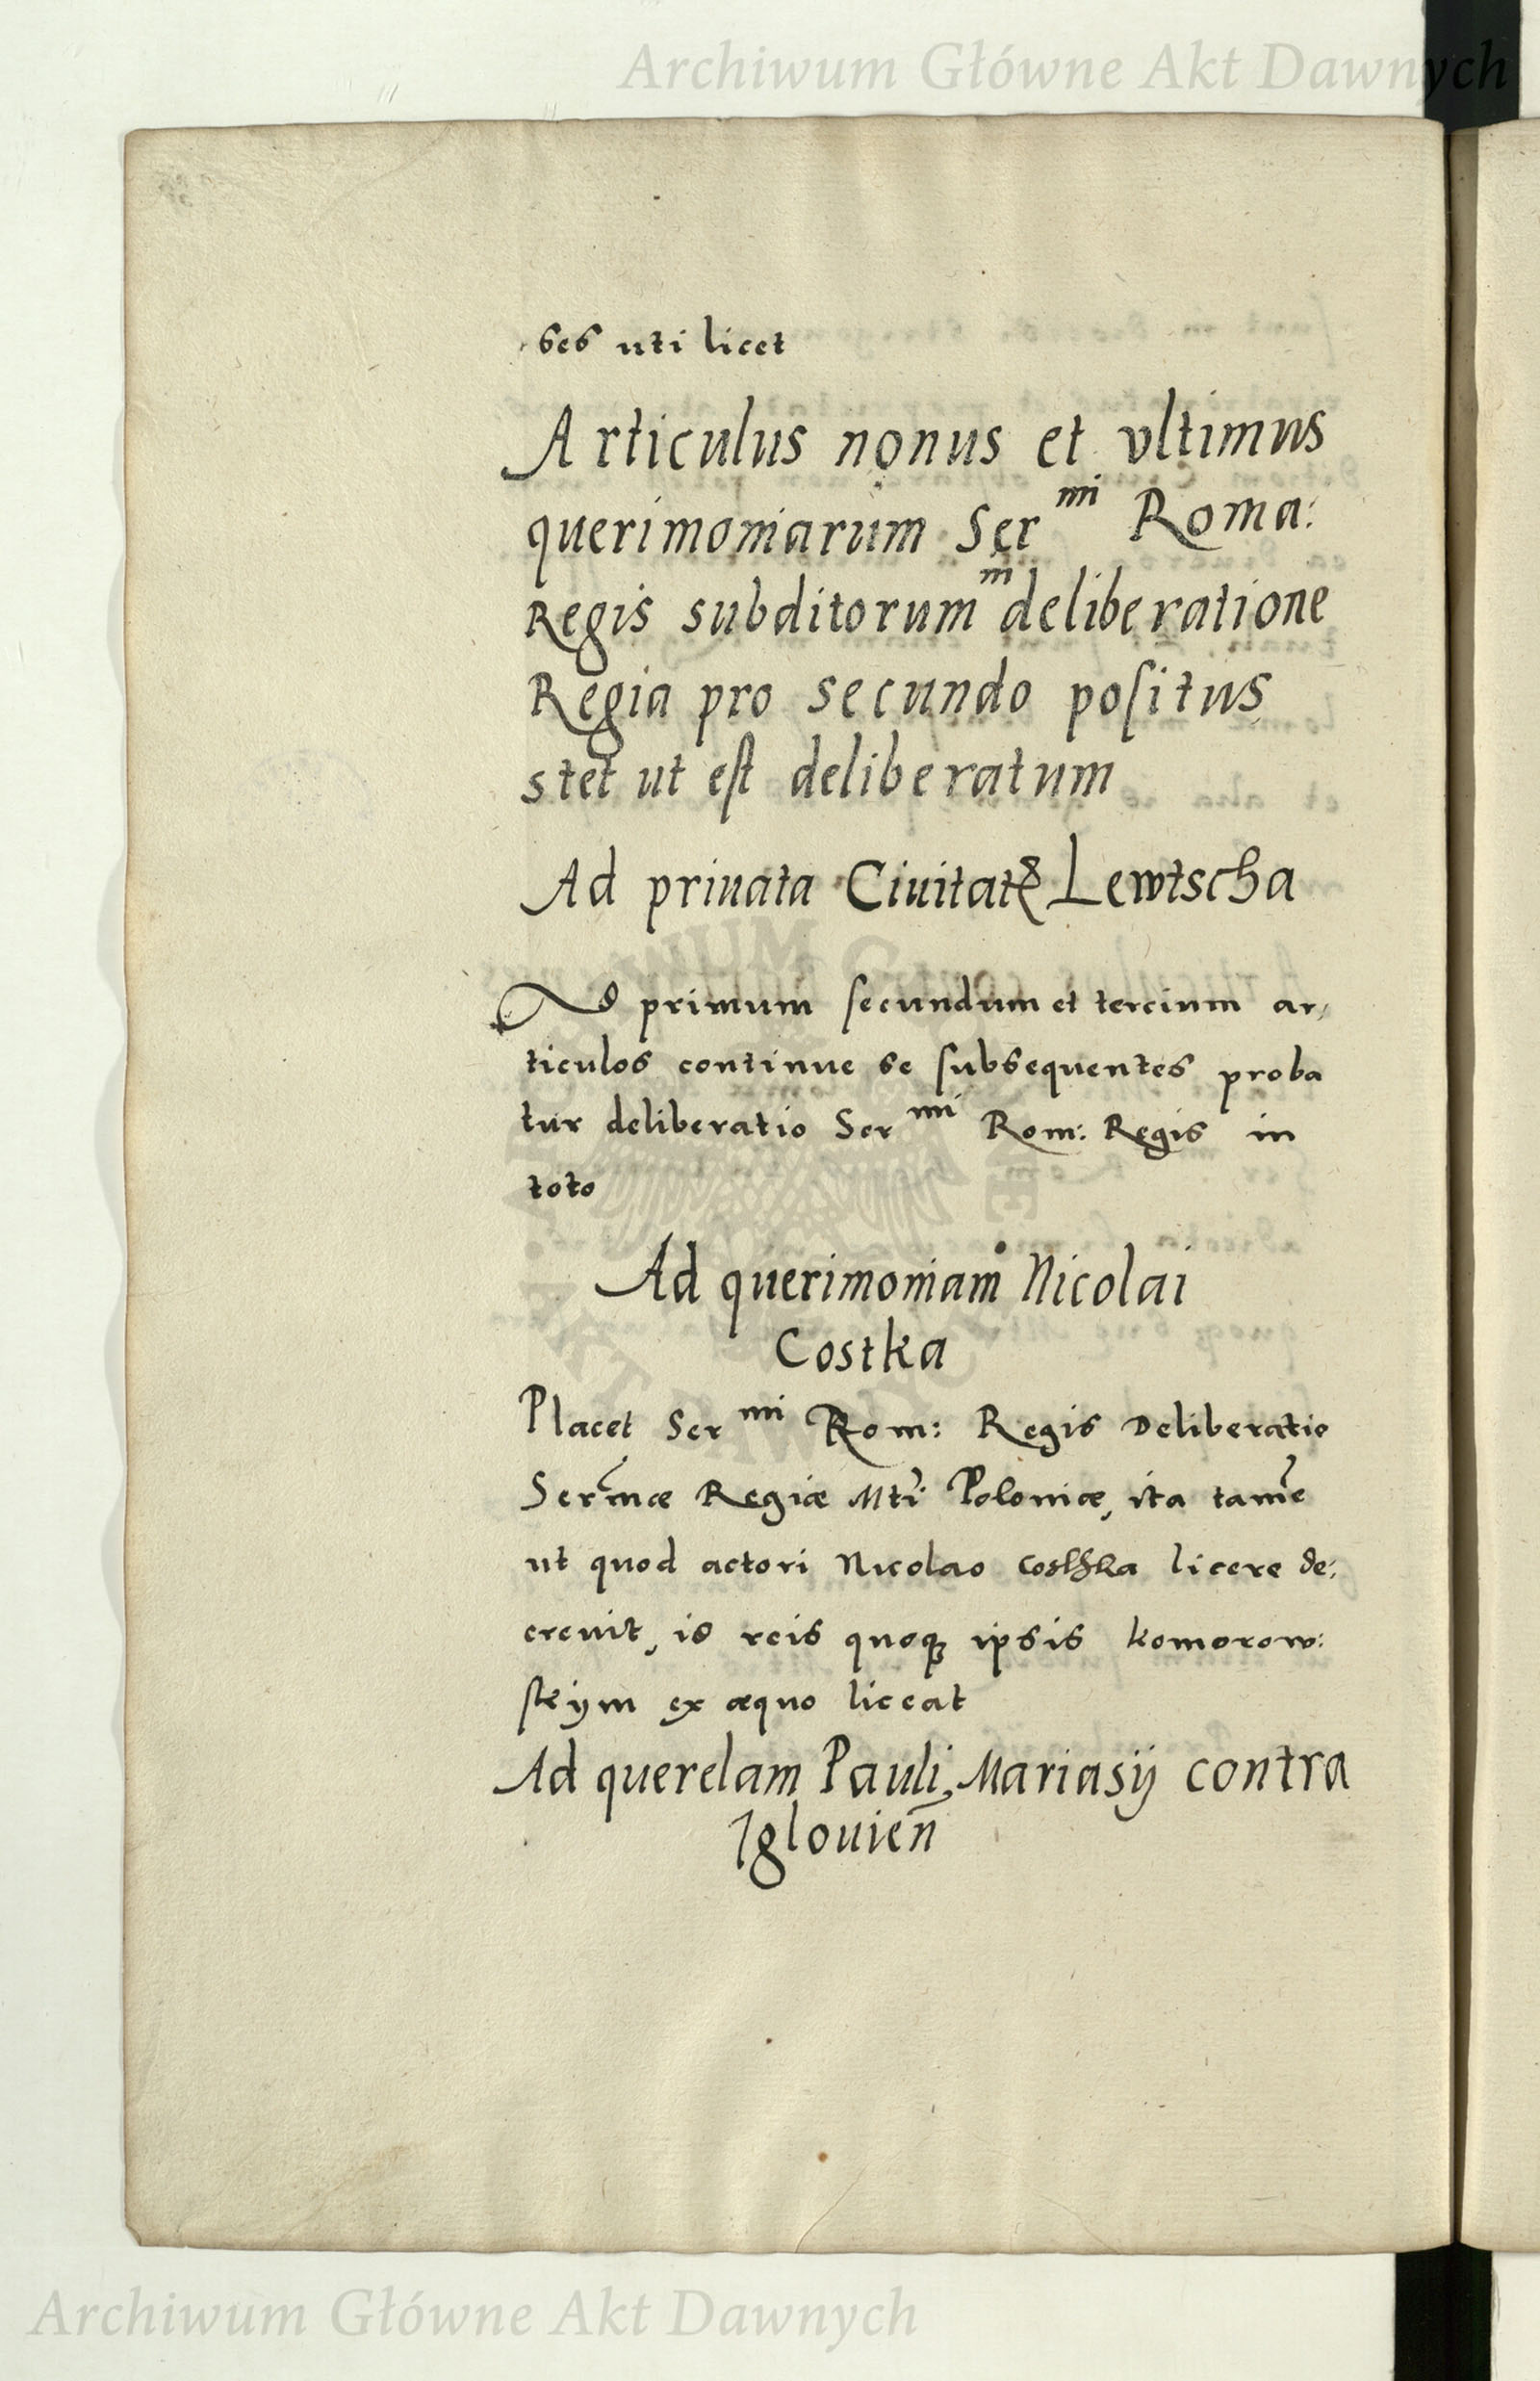 Archiwum Główne Akt Dawnych
ses uti licet
Articulus nonus et vltimus
querimoniarum Ser^mi Roma:
Regis subditorum ^in deliberatione
Regia pro secundo positus
stet ut est deliberatum
Ad priuata Ciuitatꝭ Lewtscha
Ad primum secundum et tercium ar,
ticulos continue se subsequentes proba
tur deliberatio Ser^mi Rom: Regis in
toto
Ad querimoniam Nicolai
Costka
Placet Ser^mi Rom: Regis Deliberatio
Serm̃æ Regiæ Mti: Poloniæ, ita tamẽ
ut quod actori Nicolao licere de:
creuit, id reis quoqꝫ ipsis komorow:
skijm ex æquo liceat
Ad querelam Pauli, Mariasij contra
Iglouień
Archiwum Główne Akt Dawnych